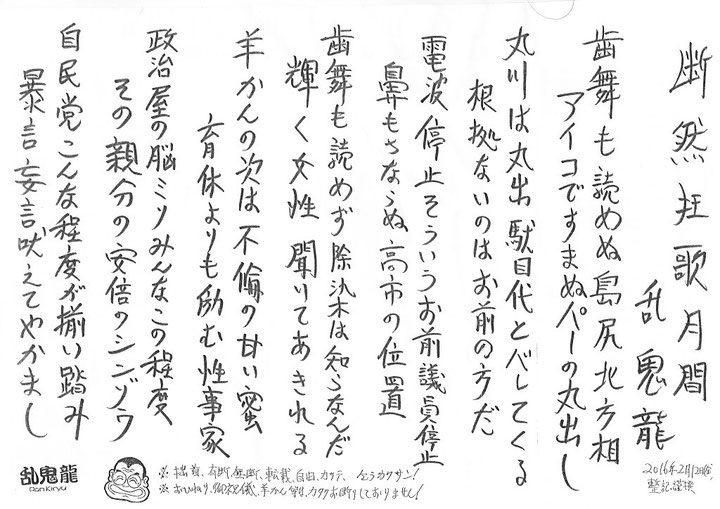 断然狂歌月間
乱鬼龍
歯舞も読めぬ島尻北方相
アイコですまぬパーの丸出し
丸川は丸出駄目代とバレてくる
根拠ないのはお前の方だ
電波停止そういうお前議員停止
鼻もちならぬ高市の位置
歯舞も読めず除染は知らなんだ
輝く女性聞いてあきれる
羊かんの次は不倫の甘い蜜
育休よりも励む性事家
政治屋の脳ミソみんなこの程度
その親分の安倍のシンゾウ
自民党こんな程度が揃い踏み
暴言妄言吠えてやかまし
2016年2月12日(金)
整記、謹撰
乱鬼龍
RanKiryu
※拙首、有断、無断、転載、自由、カッテ、
※おひねり、御祝儀、羊かん等は、カタクお断りしておりません!